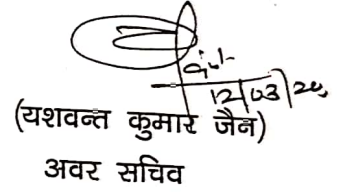 12/03/20
(यशवन्त कुमार जैन)
अवर सचिव